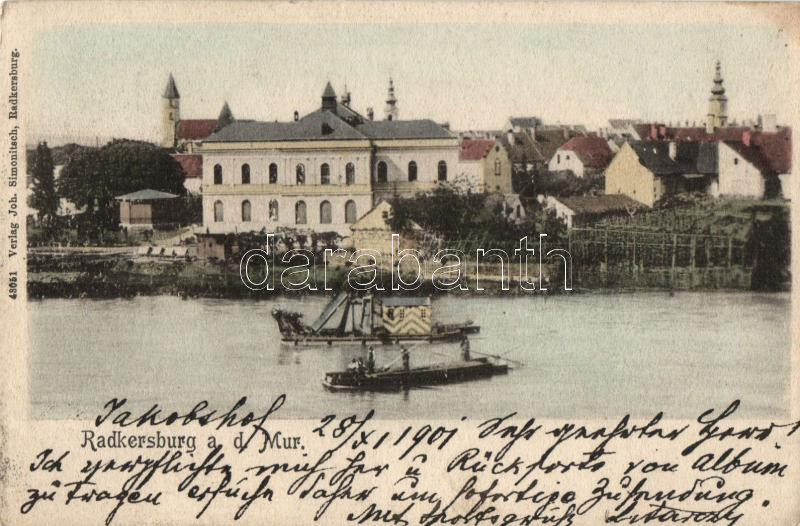 43051 Verlag Joh. Simonitsch, Radkersburg.
darabanth
Radkersburg a. d. Mur.
Jakobshof 28/XI 1901 Sehr geehrter Herr!
Ich verpflichte mich her u Rückporto von Album
zu tragen ersuche daher um sofortige Zusendung.
Mit Sportsgruß